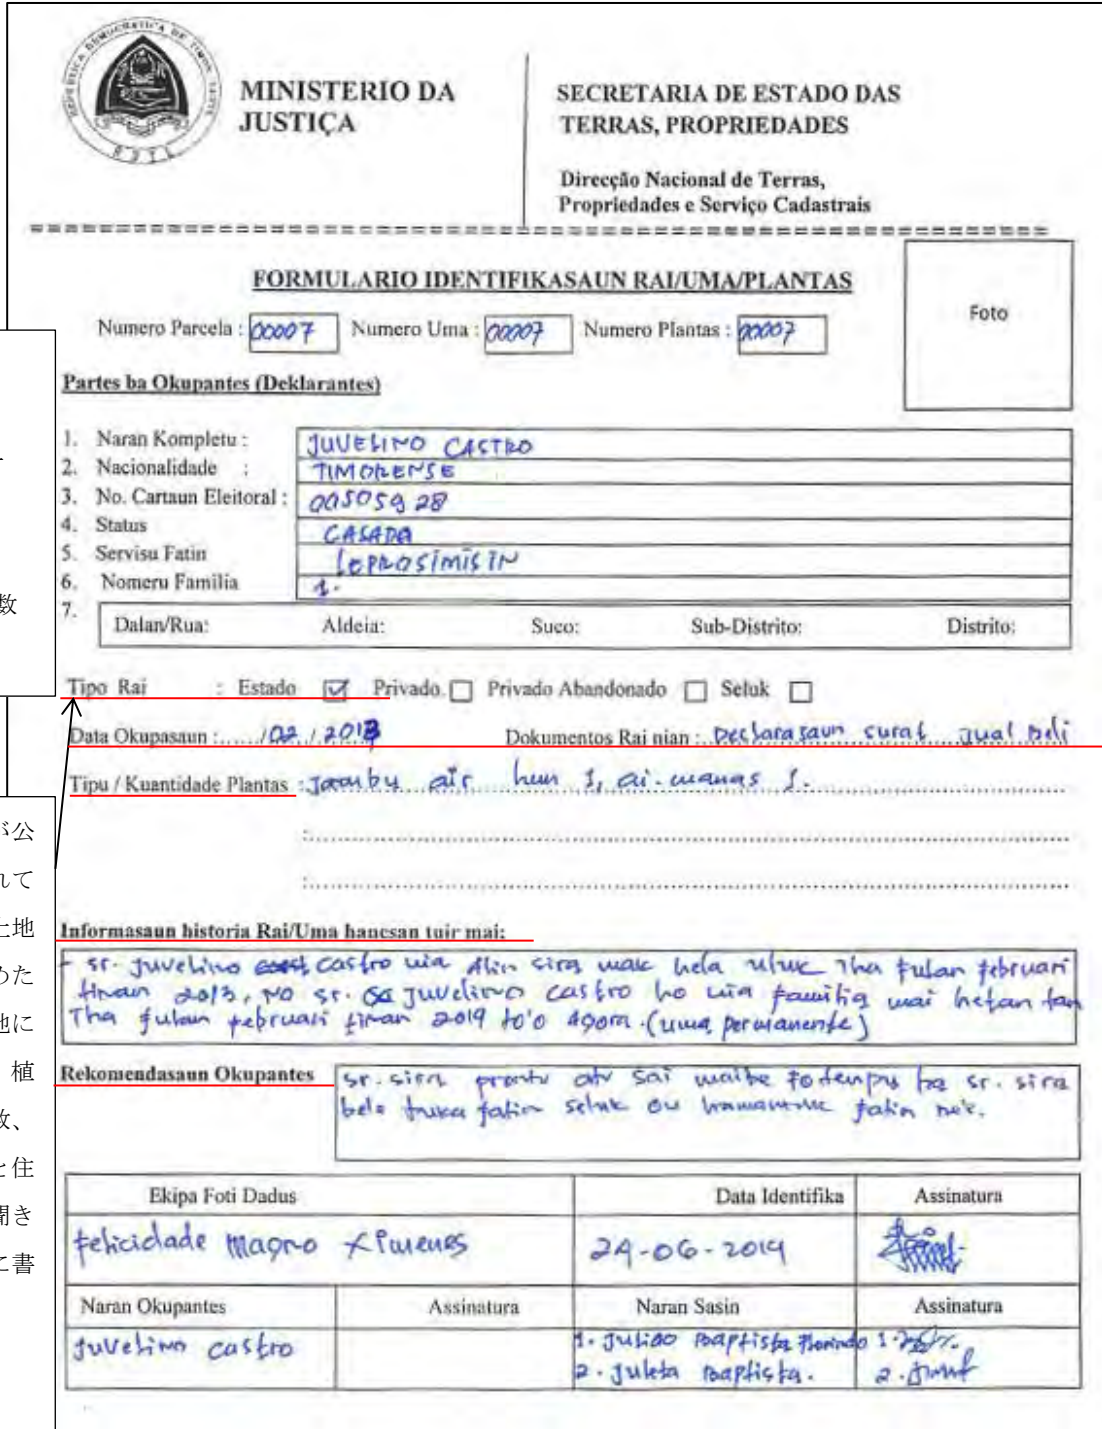 REPUBLICA DEMOCRATICA DE TIMOR LESTE
RDTL
MINISTERIO DA
JUSTIÇA
SECRETARIA DE ESTADO DAS
TERRAS, PROPRIEDADES
Direcção Nacional de Terras,
Propriedades e Serviço Cadastrais
FORMULARIO IDENTIFIKASAUN RAI/UMA/PLANTAS
Foto
Numero Parcela : 00007 Numero Uma : 00007 Numero Plantas : 00007
Partes ba Okupantes (Deklarantes)
1. Naran Kompletu : JUVELINO CASTRO
2. Nacionalidade : TIMORENSE
3. No. Cartaun Eleitoral : 00505928
4. Status CASADA
5. Servisu Fatin
6. Nomeru Familia 1.
7. Dalan/Rua: Aldeia: Suco: Sub-Distrito: Distrito:
数
Tipo Rai : Estado Privado Privado Abandonado Seluk
Data Okupasaun : ....../02/2013 Dokumentos Rai nian : Declarasaun surat jual beli
Tipu / Kuantidade Plantas : Jambu air hun 1, ai-manas 1.
が公
れて
土地
めた
地に
植
数、
と住
聞き
に書
Informasaun historia Rai/Uma hanesan tuir mai:
- sr. Juvelino Castro nia Alin sira mak hela uluk iha fulan februari
tinan 2013, no sr. Juvelino castro ho nia familia mai hetan fan
iha fulan februari tinan 2014 to'o agora. (uma permanente)
Rekomendasaun Okupantes
sr. sira prontu atu sai maibe fo tempu ba sr. sira
bele buka fatin seluk ou hamamuk fatin ne'e.
Ekipa Foti Dadus Data Identifika Assinatura
felicidade Magno Ximenes 24-06-2014
Naran Okupantes Assinatura Naran Sasin Assinatura
Juvelino castro 1. Juliao Baptista Florindo 1.
2. Juleta Baptista. 2.